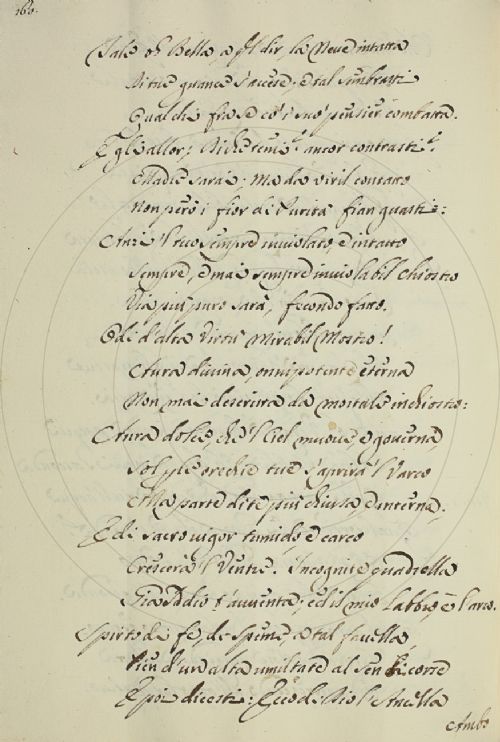 160.
Tale oh Bella, a ql dir, la Neve intatta
Di tue guance s'accese, e tal sembrasti
Qual chi fra se co' i suoi pensier combatta.
Egli allor; Di che temi? ancor contrasti?
Madre sarai; Ma da viril contatto
Non però i fior di Purità fian guasti:
Anzi 'l tuo sempre inviolato, e intatto
Sempre, e mai sempre inviolabil Chiostro
Via più puro sarà, fecondo fatto.
Odi d'alta Virtù mirabil Mostro!
Aura divina, onnipotente eterna
Non mai descritta da mortale inchiostro:
Aura dolce, che 'l Ciel muove, e governa,
Sol p le orechie tue s'aprirà 'l Varco
Alla parte di te più chiusa, e interna.
E di sacro vigor tumido e carco
Crescerà 'l Ventre. Incognita quadrella
Già Iddio t'avventa; ed il mio Labbro è l'arco.
Spirto di fe, di speme a tal favella
Vien d'una alta umiltate al sen ti corre
E poi dicesti: Ecco di Dio l'Ancella
Ambo